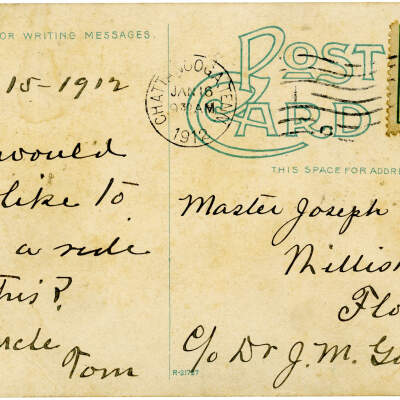 OR WRITING MESSAGES.
15-1912
would
like to
a ride
this?
Tom
R-21757
POST
CARD
CHATTANOOGA, TENN.
JAN 16
930 AM
1912
THIS SPACE FOR ADDR
Master Joseph
Millis
Flo
c/o Dr J. M. G